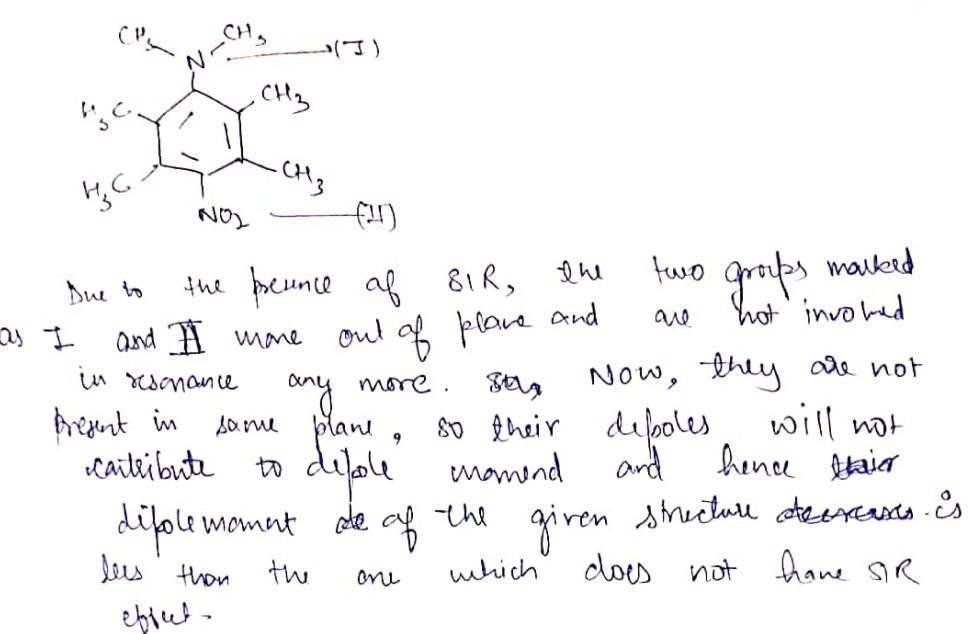 CH3 CH3
N → (I)
H3C CH3
H3C CH3
NO2 — (II)
Due to the presence of SIR, the two groups marked
as I and II move out of plane and are not involved
in resonance any more. Now, they are not
present in same plane, so their dipoles will not
contribute to dipole momend and hence
dipole moment of the given structure is
less than the one which does not have SIR
effect.